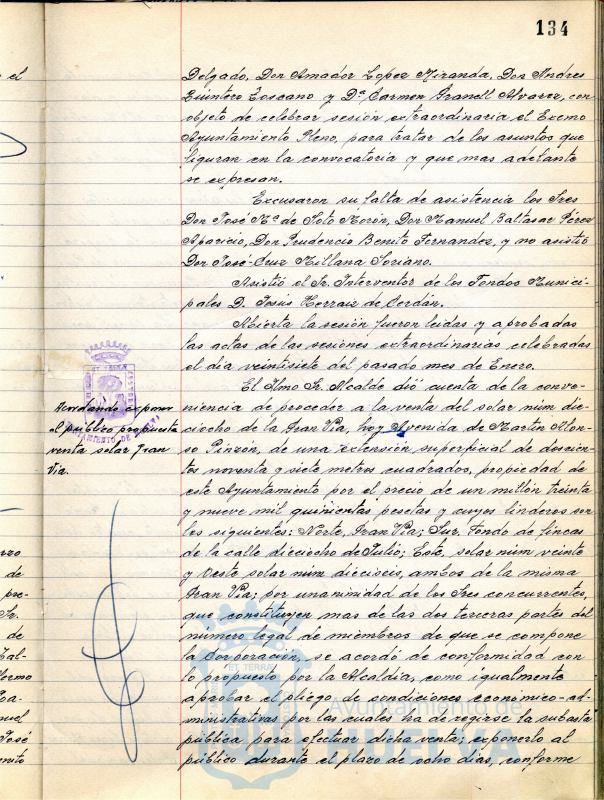 134
Delgado, Don Amador Lopez Miranda, Don Andres
Quintero Toscano y Dª Carmen Granell Alvarez, con
objeto de celebrar sesión extraordinaria el Excmo
Ayuntamiento Pleno, para tratar de los asuntos que
figuran en la convocatoria y que mas adelante
se expresan.
Excusaron su falta de asistencia los Sres
Don José Mª de Soto Morón, Don Manuel Baltasar Pérez
Aparicio, Don Prudencio Benito Fernandez, y no asistió
Don José-Cruz Millana Soriano.
Asistió el Sr. Interventor de los Fondos Munici-
pales D. Jesús Herraiz de Cerdán.
Abierta la sesión fueron leidas y aprobadas
las actas de las sesiones extraordinarias celebradas
el dia veintisiete del pasado mes de Enero.
El Ilmo Sr. Alcalde dió cuenta de la conve-
niencia de proceder a la venta del solar núm die-
ciocho de la Gran Via, hoy Avenida de Martin Alon-
so Pinzón, de una extensión superficial de doscien-
tos noventa y siete metros cuadrados, propiedad de
este Ayuntamiento por el precio de un millón treinta
y nueve mil quinientas pesetas y cuyos linderos son
los siguientes: Norte, Gran Via; Sur, Fondo de fincas
de la calle dieciocho de Julio; Este, solar núm veinte
y Oeste solar núm dieciseis, ambos de la misma
Gran Via; por unanimidad de los Sres concurrentes,
que constituyen mas de las dos terceras partes del
numero legal de miembros de que se compone
la Corporación, se acordó de conformidad con
lo propuesto por la Alcaldia, como igualmente
aprobar el pliego de condiciones económico-ad-
ministrativas por las cuales ha de regirse la subasta
pública para efectuar dicha venta; exponerlo al
público durante el plazo de ocho dias, conforme
Acordando exponer
al público propuesta
venta solar Gran
Via.
AYUNTAMIENTO DE HUELVA
Ayuntamiento de
HUELVA
el
rzo
de
pre-
Sr.
de
Bal-
lermo
Joa-
nuel
José
enito